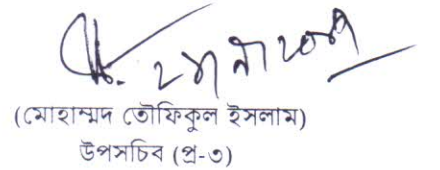 (মোহাম্মদ তৌফিকুল ইসলাম)
উপসচিব (প্র-৩)